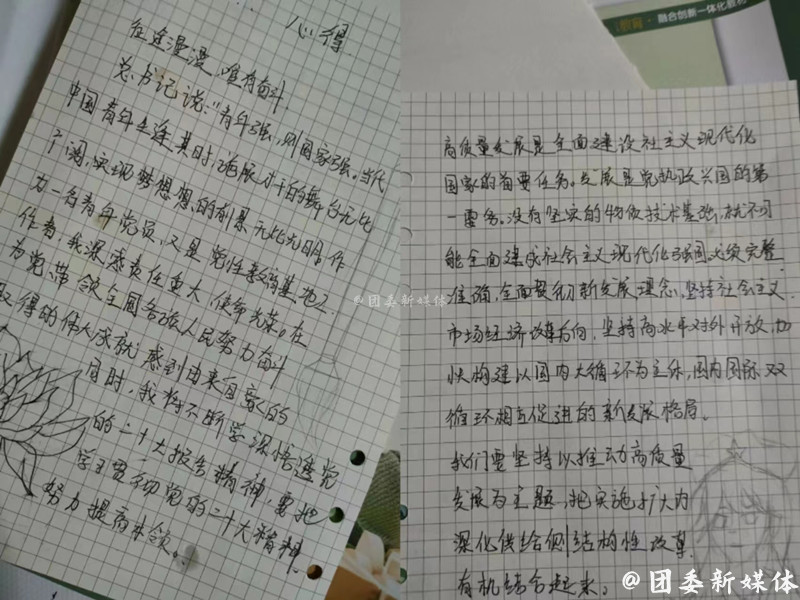 心得
征途漫漫，唯有奋斗
总书记说："青年强，则国家强。当代
中国青年生逢其时，施展才干的舞台无比
广阔，实现梦想想的前景无比光明。作
为一名青年党员，又是党性教育基地工
作者，我深感责任重大，使命光荣。在
为党、带领全国各族人民努力奋斗
取得的伟大成就感到由来自豪的
同时，我将不断学深悟透党
的二十大报告精神，要把
学习贯彻党的二十大精神
努力提高本领。
@团委新媒体
教育·融合创新一体化教材
高质量发展是全面建设社主义现代化
国家的首要任务。发展是党执政兴国的第
一要务。没有坚实的物质技术基础，就不可
能全面建成社会主义现代化强国必须完整
准确，全面贯彻新发展理念，坚持社会主义
市场经济改革方向，坚持高水平对外开放，加
快构建以国内大循环为主体，国内国际双
循环相互促进的新发展格局。
我们要坚持以推动高质量
发展为主题，把实施扩大内
深化供给侧结构性改革
有机结合起来。
@团委新媒体